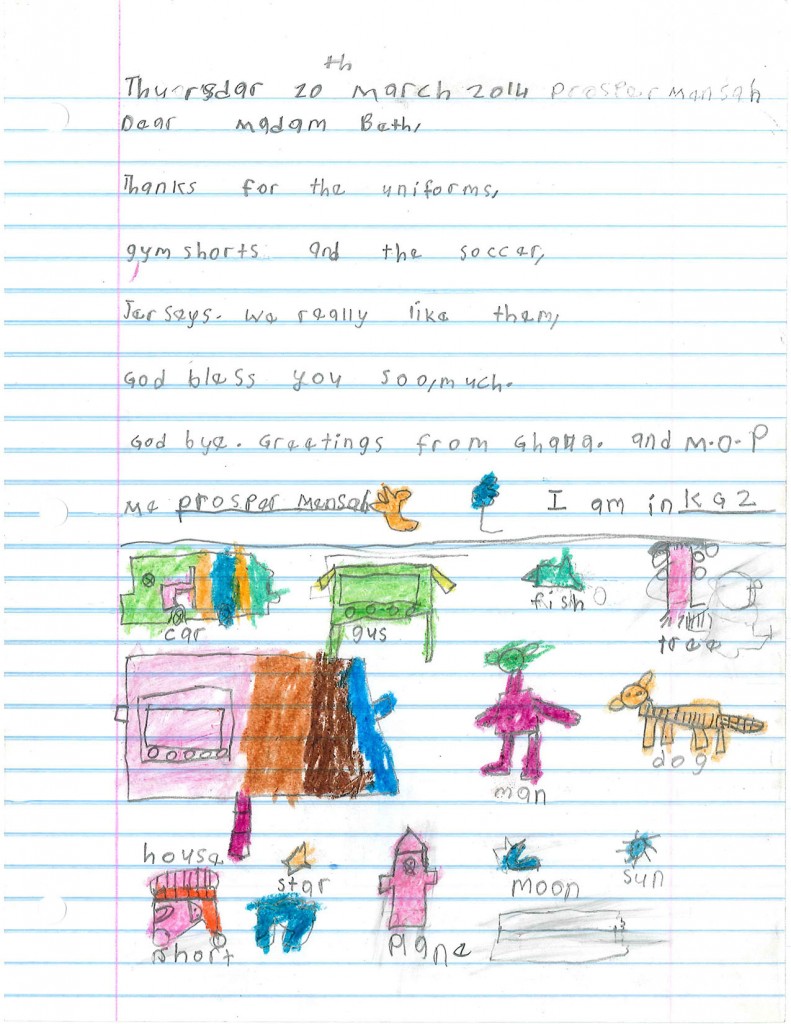 th
Thursdar 20 March 2014 prosper mansah
Dear Madam Beth,
Thanks for the uniforms,
gym shorts and the soccer,
Jerseys. we really like them,
God bless you soo,much.
God bye. Greetings from Ghana. and M.O.P
Me prosper Mensah I am in KG2
car gus fish tree
man dog
house star moon sun
short plane